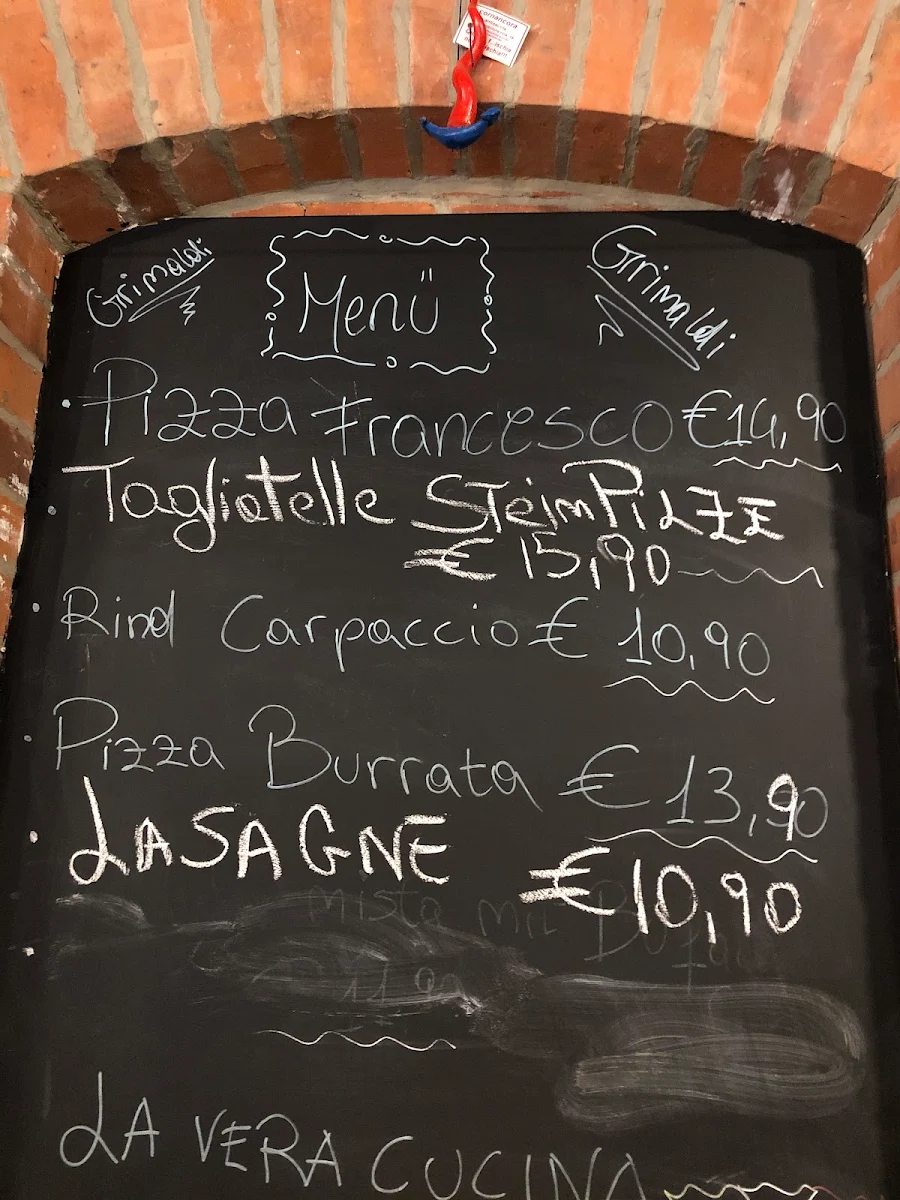 cornancora
Grimaldi
Menü
Grimaldi
Pizza Francesco €14,90
Tagliatelle STeimPiLZE
€ 15,90
Rind Carpaccio € 10,90
Pizza Burrata € 13,90
LASAGNE € 10,90
mista mit
11,90
LA VERA CUCINA